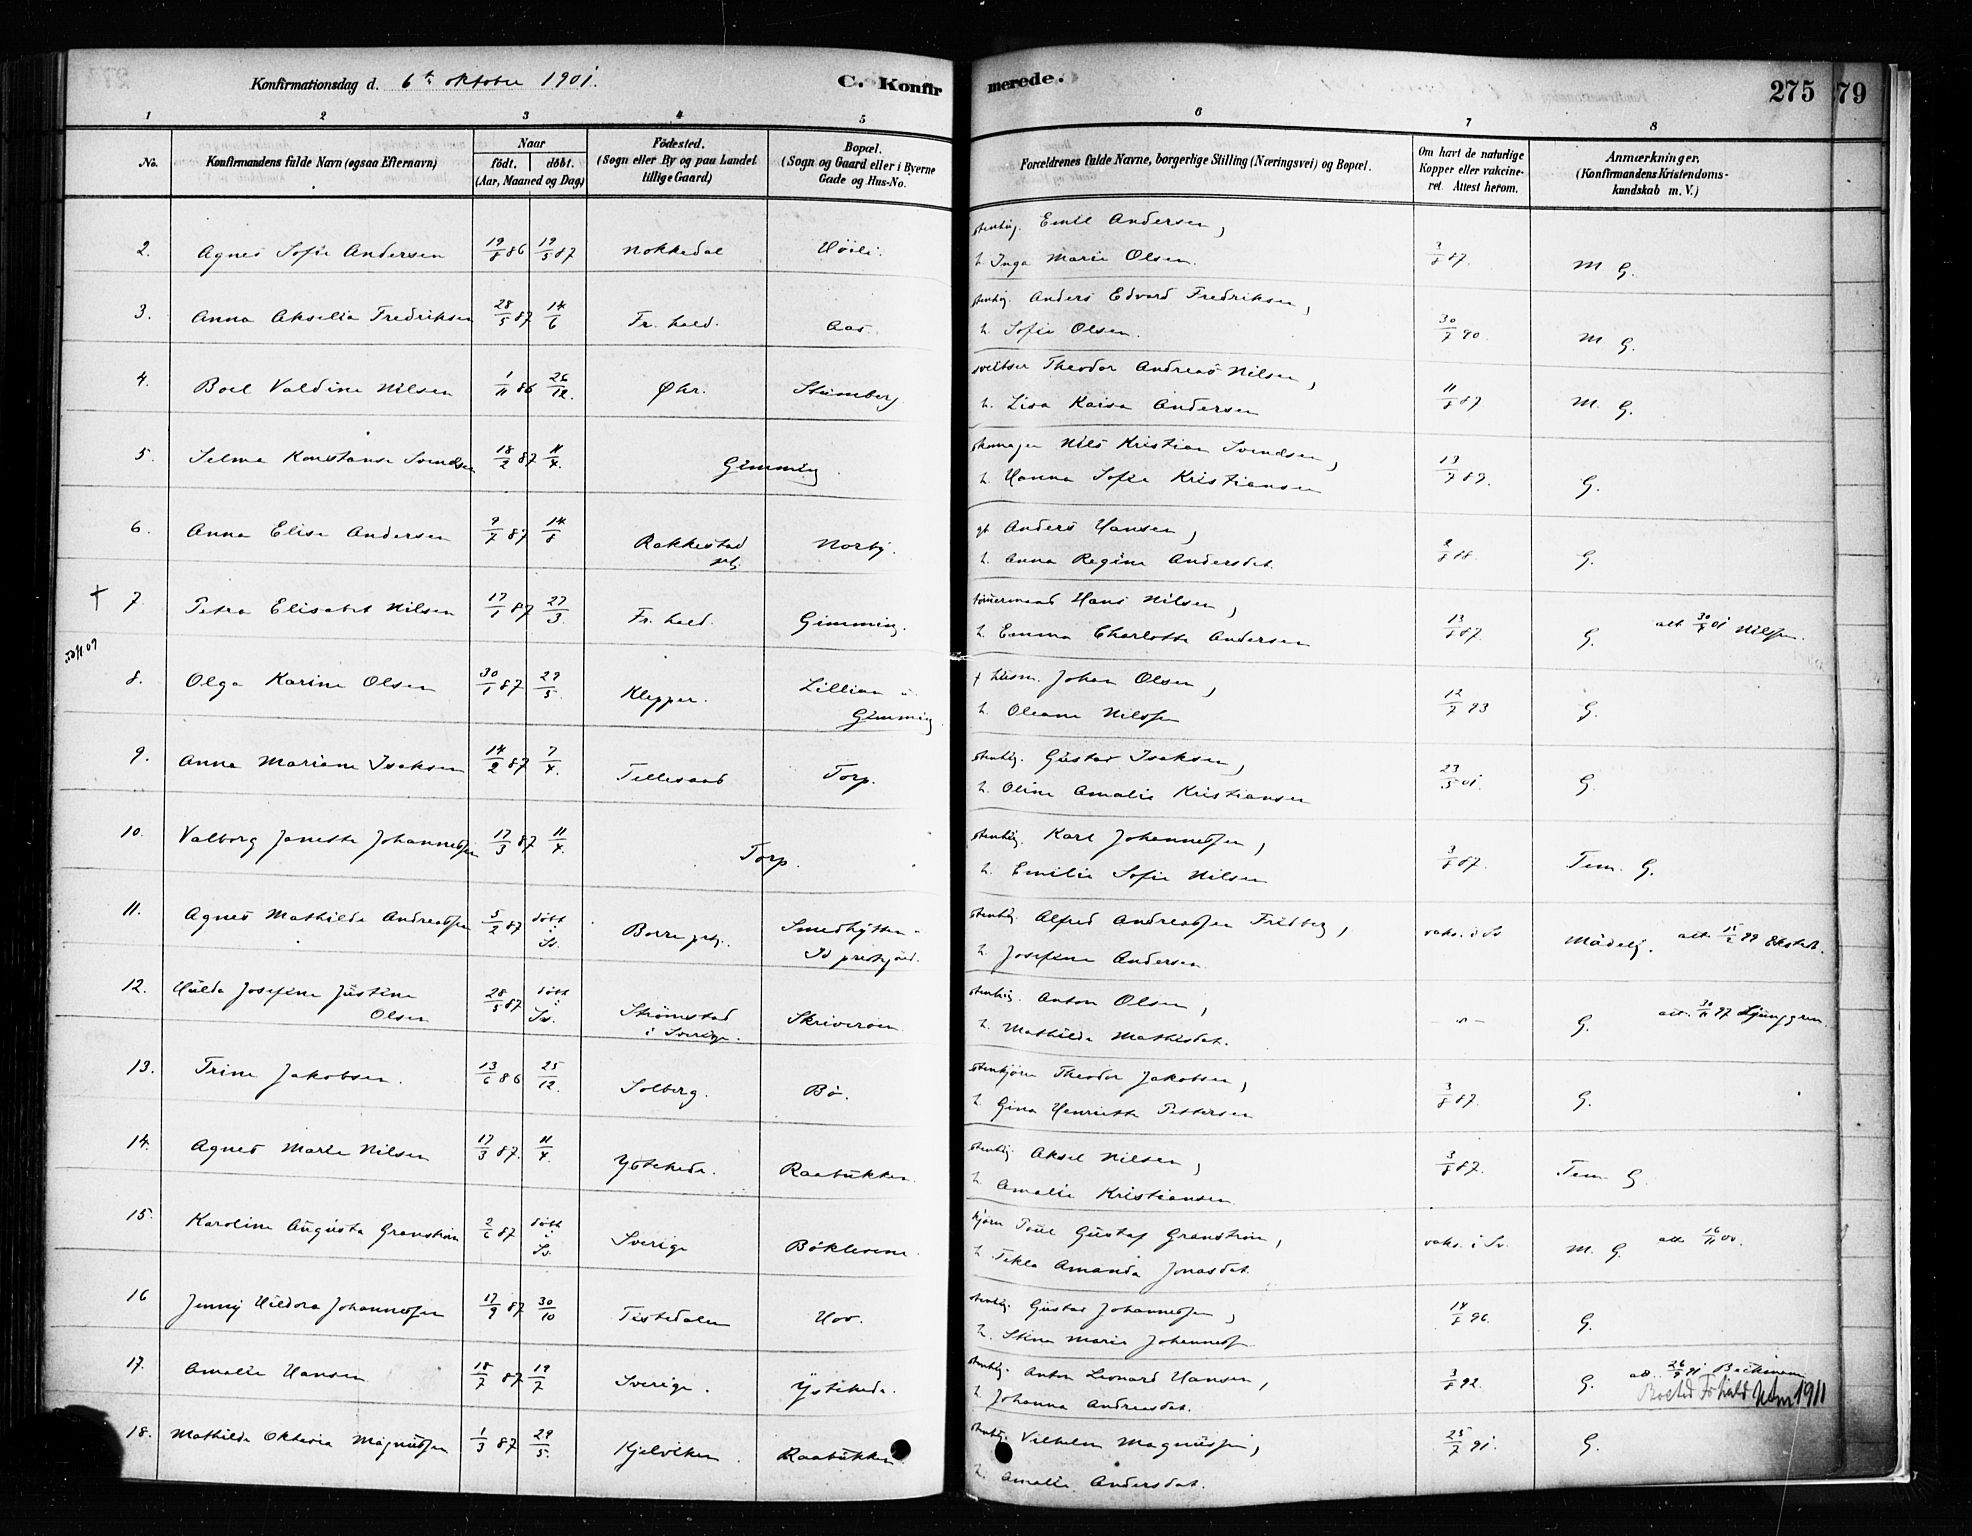 Konfirmationsdag d. 6te oktober 1901.
C. Konfirmerede.
275 79
1 2 3 4 5 6 7 8
No.
Konfirmandens fulde Navn (ogsaa Efternavn)
Naar
födt. döbt.
(Aar, Maaned og Dag)
Födested.
(Sogn eller By og paa Landet
tillige Gaard)
Bopæl.
(Sogn og Gaard eller i Byerne
Gade og Hus-No.
Forældrenes fulde Navne, borgerlige Stilling (Næringsvei) og Bopæl.
Om havt de naturlige
Kopper eller vakcine-
ret. Attest herom.
Anmærkninger,
(Konfirmandens Kristendoms-
kundskab m. V.)
stenhug. Emil Andersen,
2. Agnes Sofie Andersen 19/8 86 19/5 87 Nokkedal
h. Inga Marie Olsen. 3/8 87. M G.
stenhug. Anders Edvard Fredriksen,
3. Anna Akselia Fredriksen 28/5 87 14/6 Fr.hald. Aas.
h. Sofie Olsen. 30/7 90. M G.
Theodor Andreas Nilsen,
4. Boel Valdine Nilsen 1/11 86 26/12. Øhr.
h. Lisa Kaisa Andersen 11/8 87 M. G.
skomager Nils Kristian Svendsen,
5. Selma Konstanse Svendsen 18/2 87 11/4. Gimming.
h. Hanna Sofie Kristiansen 13/7 89. G.
6. Anna Elise Andersen 9/7 87 14/8 Rakkestad Norby.
Anders Hansen,
h. Anna Regine Andersdat. G.
tømmermand Hans Nilsen,
† 7. Petra Elisabet Nilsen 17/1 87 27/3. Fr.hald. Gimming.
h. Emma Charlotte Andersen 13/8 87. G. att. 30/9 01 Nilssen.
8. Olga Karine Olsen 30/1 87 29/5. Klepper. Lillian u.
Gimming
† husm. Johan Olsen,
h. Oleane Nilssen 12/7 93 G.
stenhug. Gustav Isaksen,
9. Anna Mariane Isaksen 14/2 87 7/4. Torp.
h. Oline Amalie Kristiansen 23/5 01. G.
stenhug. Karl Johannessen,
10. Valborg Janette Johannessen 17/3 87 11/4. Torp.
h. Emilie Sofie Nilsen 3/8 87. Tem. G.
stenhug. Alfred Andreassen Fredberg,
11. Agnes Mathilde Andreassen 5/2 87 døbt
i
Sv. Borre prg.
Id prestgjæld.
h. Josefine Andersen. vaks. i Sv Mådelig. att. 11/2 99 Ekstet.
stenhug. Anton Olsen,
12. Hulda Josefine Justine
Olsen 28/5 87 døbt
i
Sv. Strømstad
i Sverige. Skriverøen
h. Mathilde Mathisdat. -"- G. att. 30/11 97 Ljunggren.
Theodor Jakobsen,
13. Trine Jakobsen. 13/6 86 25/12. Solberg. Bø.
h. Gina Henriette Pettersen 3/8 87. G.
stenhug. Aksel Nilsen,
14. Agnes Marie Nilsen 17/3 87. 11/4. Ystehede. Raabukken.
h. Amalie Kristiansen. 3/8 87. Tem. G.
Gustaf Granstrøm,
15. Karoline Augusta Granstrøm 2/6 87 døbt
i
Sv. Sverige Bøklevene.
h. Tekla Amanda Jonasdat. vaks. i Sv. M. G. att. 16/11 00.
stenhug. Gustav Johannessen,
16 Jenny Hildora Johannessen 17/9 87 30/10 Tistedalen Hov.
h. Stine Marie Johanness. 14/8 96. G.
stenhug. Anton Leonard Hansen,
17. Amalie Hansen 18/7 87 19/7 Sverige. Ystehede.
h. Johanna Andreasdat. 3/8 92. G. att. 26/9 91 Beckman
1911
stenhug. Vilhelm Magnussen,
18. Mathilde Oktavia Magnussen 1/3 87 29/5. Kjelviken. Raabukken.
h. Amalie Andersdat. 25/7 91. G.